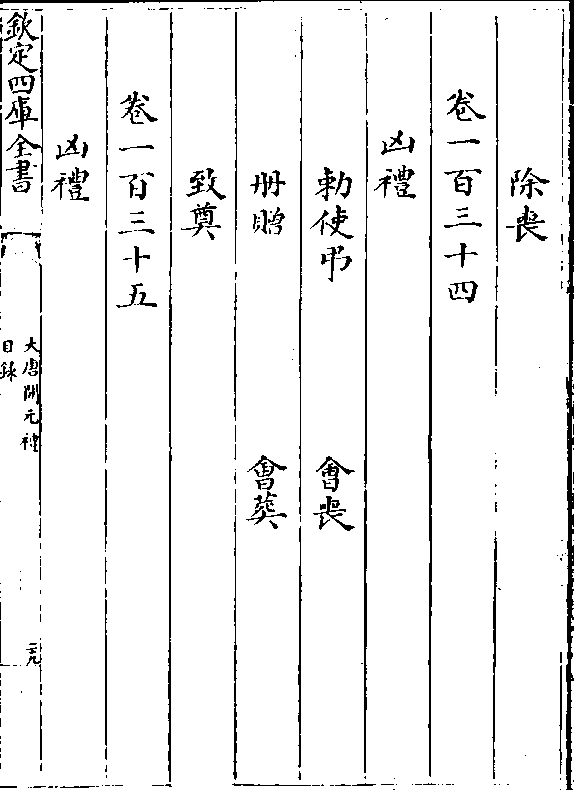 除喪
卷一百三十四
凶禮
勅使弔 會喪
册贈 會葬
致奠
卷一百三十五
凶禮
欽定四庫全書
大唐開元禮
目錄
二九